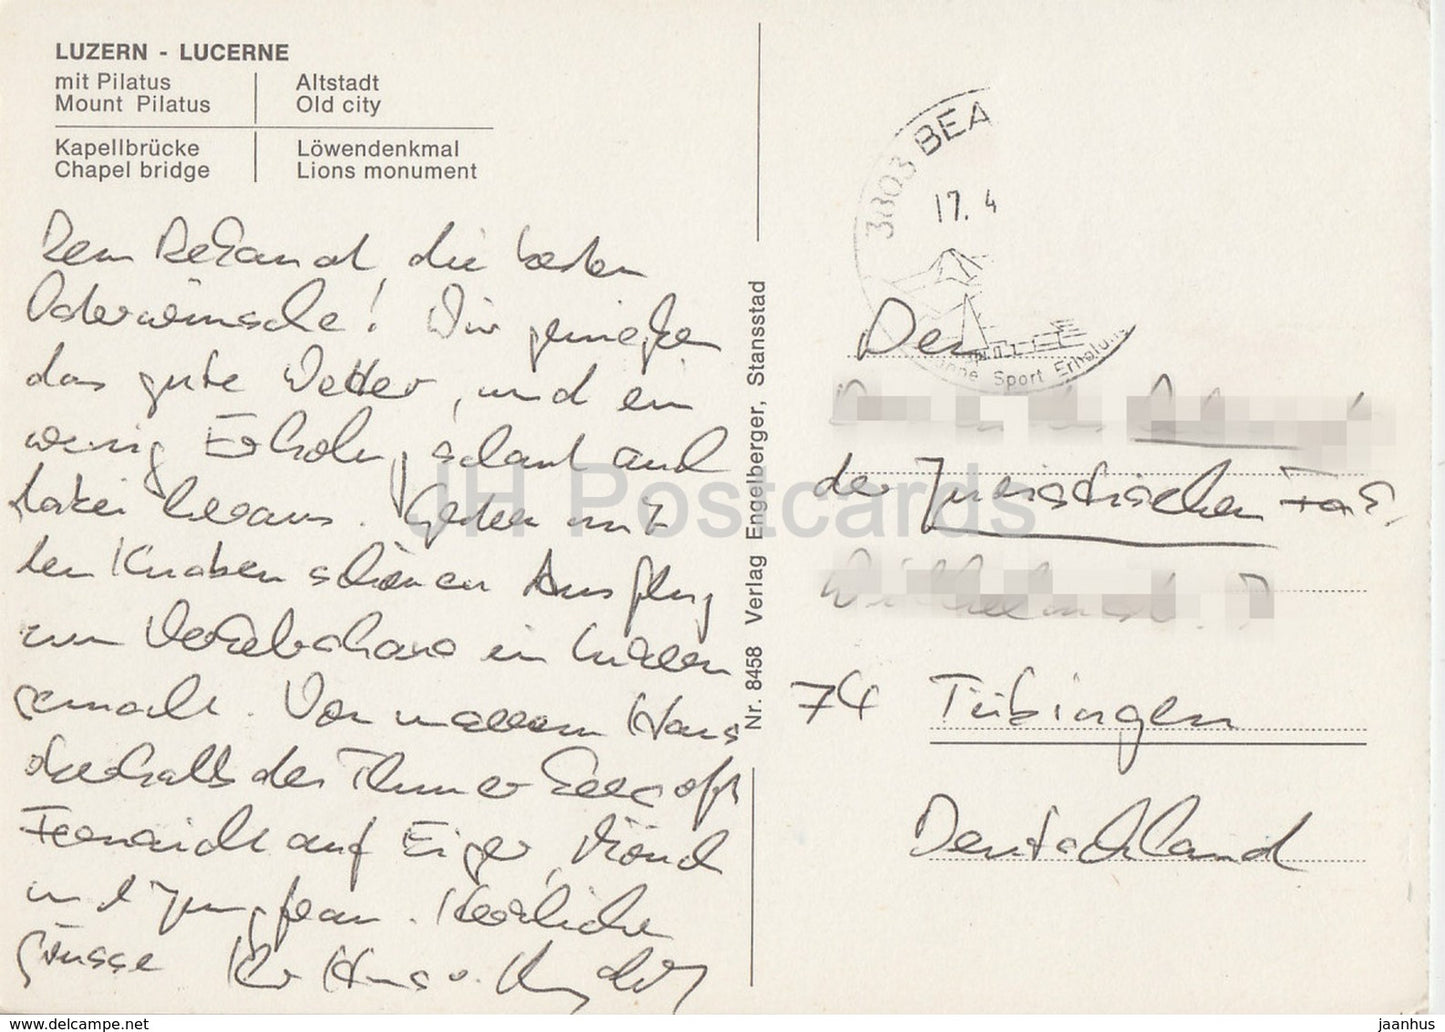 LUZERN - LUCERNE
mit Pilatus
Mount Pilatus
Altstadt
Old city
Kapellbrücke
Chapel bridge
Löwendenkmal
Lions monument
Dem Dekanat die besten
Osterwünsche! Wir genießen
das gute Wetter, und ein
wenig Erholung schaut auch
dabei heraus. Gestern mit
den Knaben schönen Ausflug
zum Verkehrshaus in Luzern
gemacht. Von unserem Haus
oberhalb des Thuner Sees oft
Fernsicht auf Eiger, Mönch
und Jungfrau. Herzliche
Grüsse Ihr Hans v.
Nr. 8458 Verlag Engelberger, Stansstad
3803 BEA
17. 4
Sport Erholu
Den
der Juristischen Fak.
74 Tübingen
Deutschland
JH Postcards
delcampe.net
jaanhus